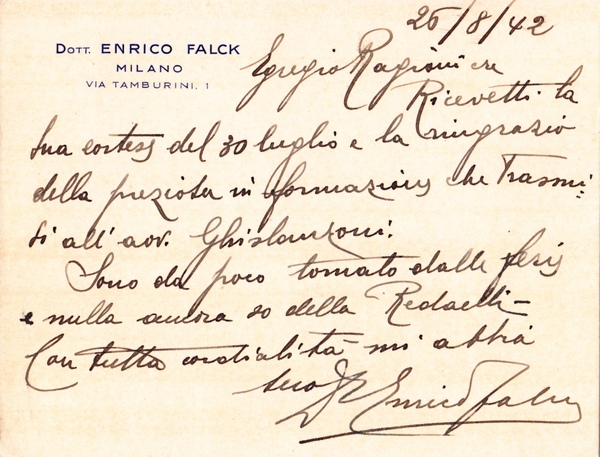 26/8/42
DOTT. ENRICO FALCK
MILANO
VIA TAMBURINI, 1
Egregio Ragioniere
Ricevetti la
sua cortese del 30 luglio e la ringrazio
della preziosa informazione che trasmi-
si all'avv. Ghislanzoni.
Sono da poco tornato dalle ferie
e nulla ancora so della Redaelli-
Con tutta cordialità mi abbia
suo Enrico Falck